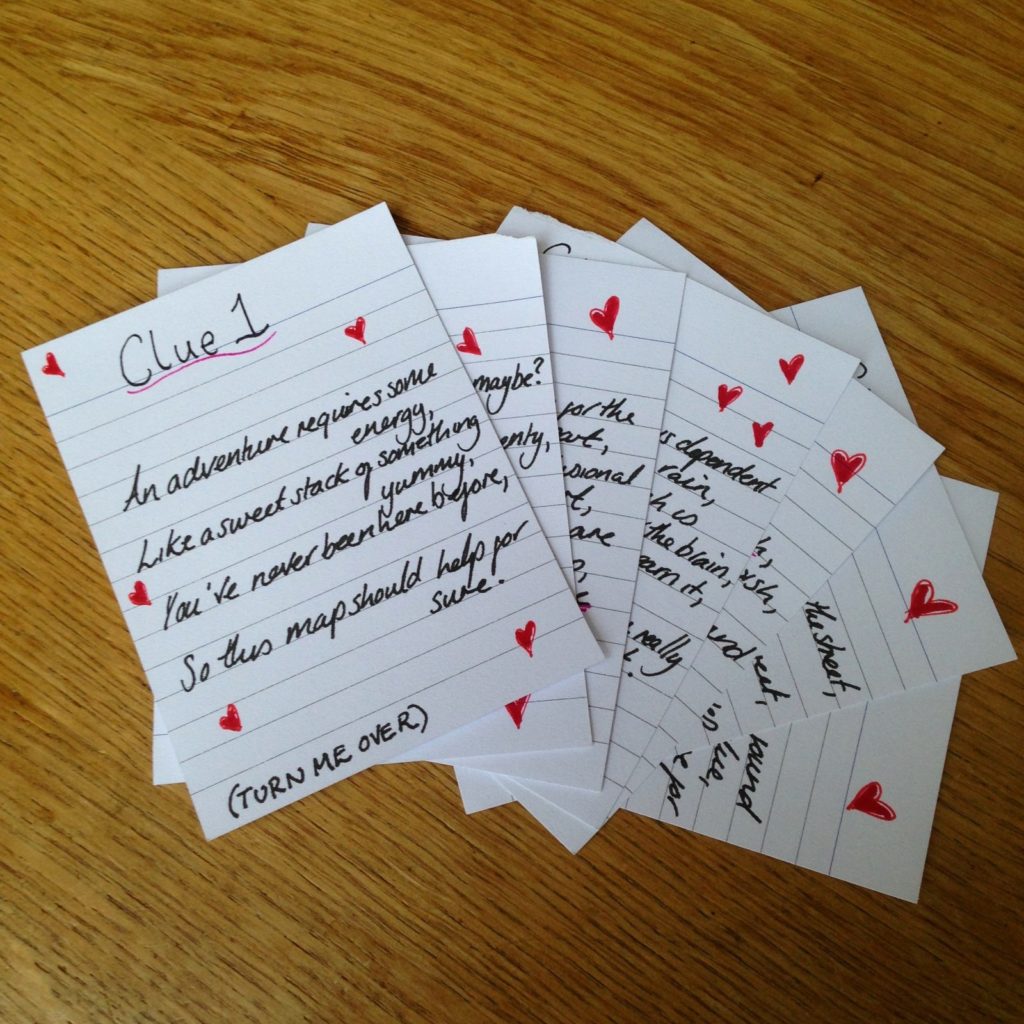 Clue 1
An adventure requires some
energy,
Like a sweet stack of something
yummy,
You've never been here before,
So this map should help for
sure.
(TURN ME OVER)
maybe?
for the
is dependent
rain,
is
the brain,
earn it,
are
really
the street,
round